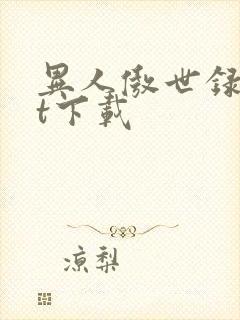 異人傲世録
t下載
凉梨